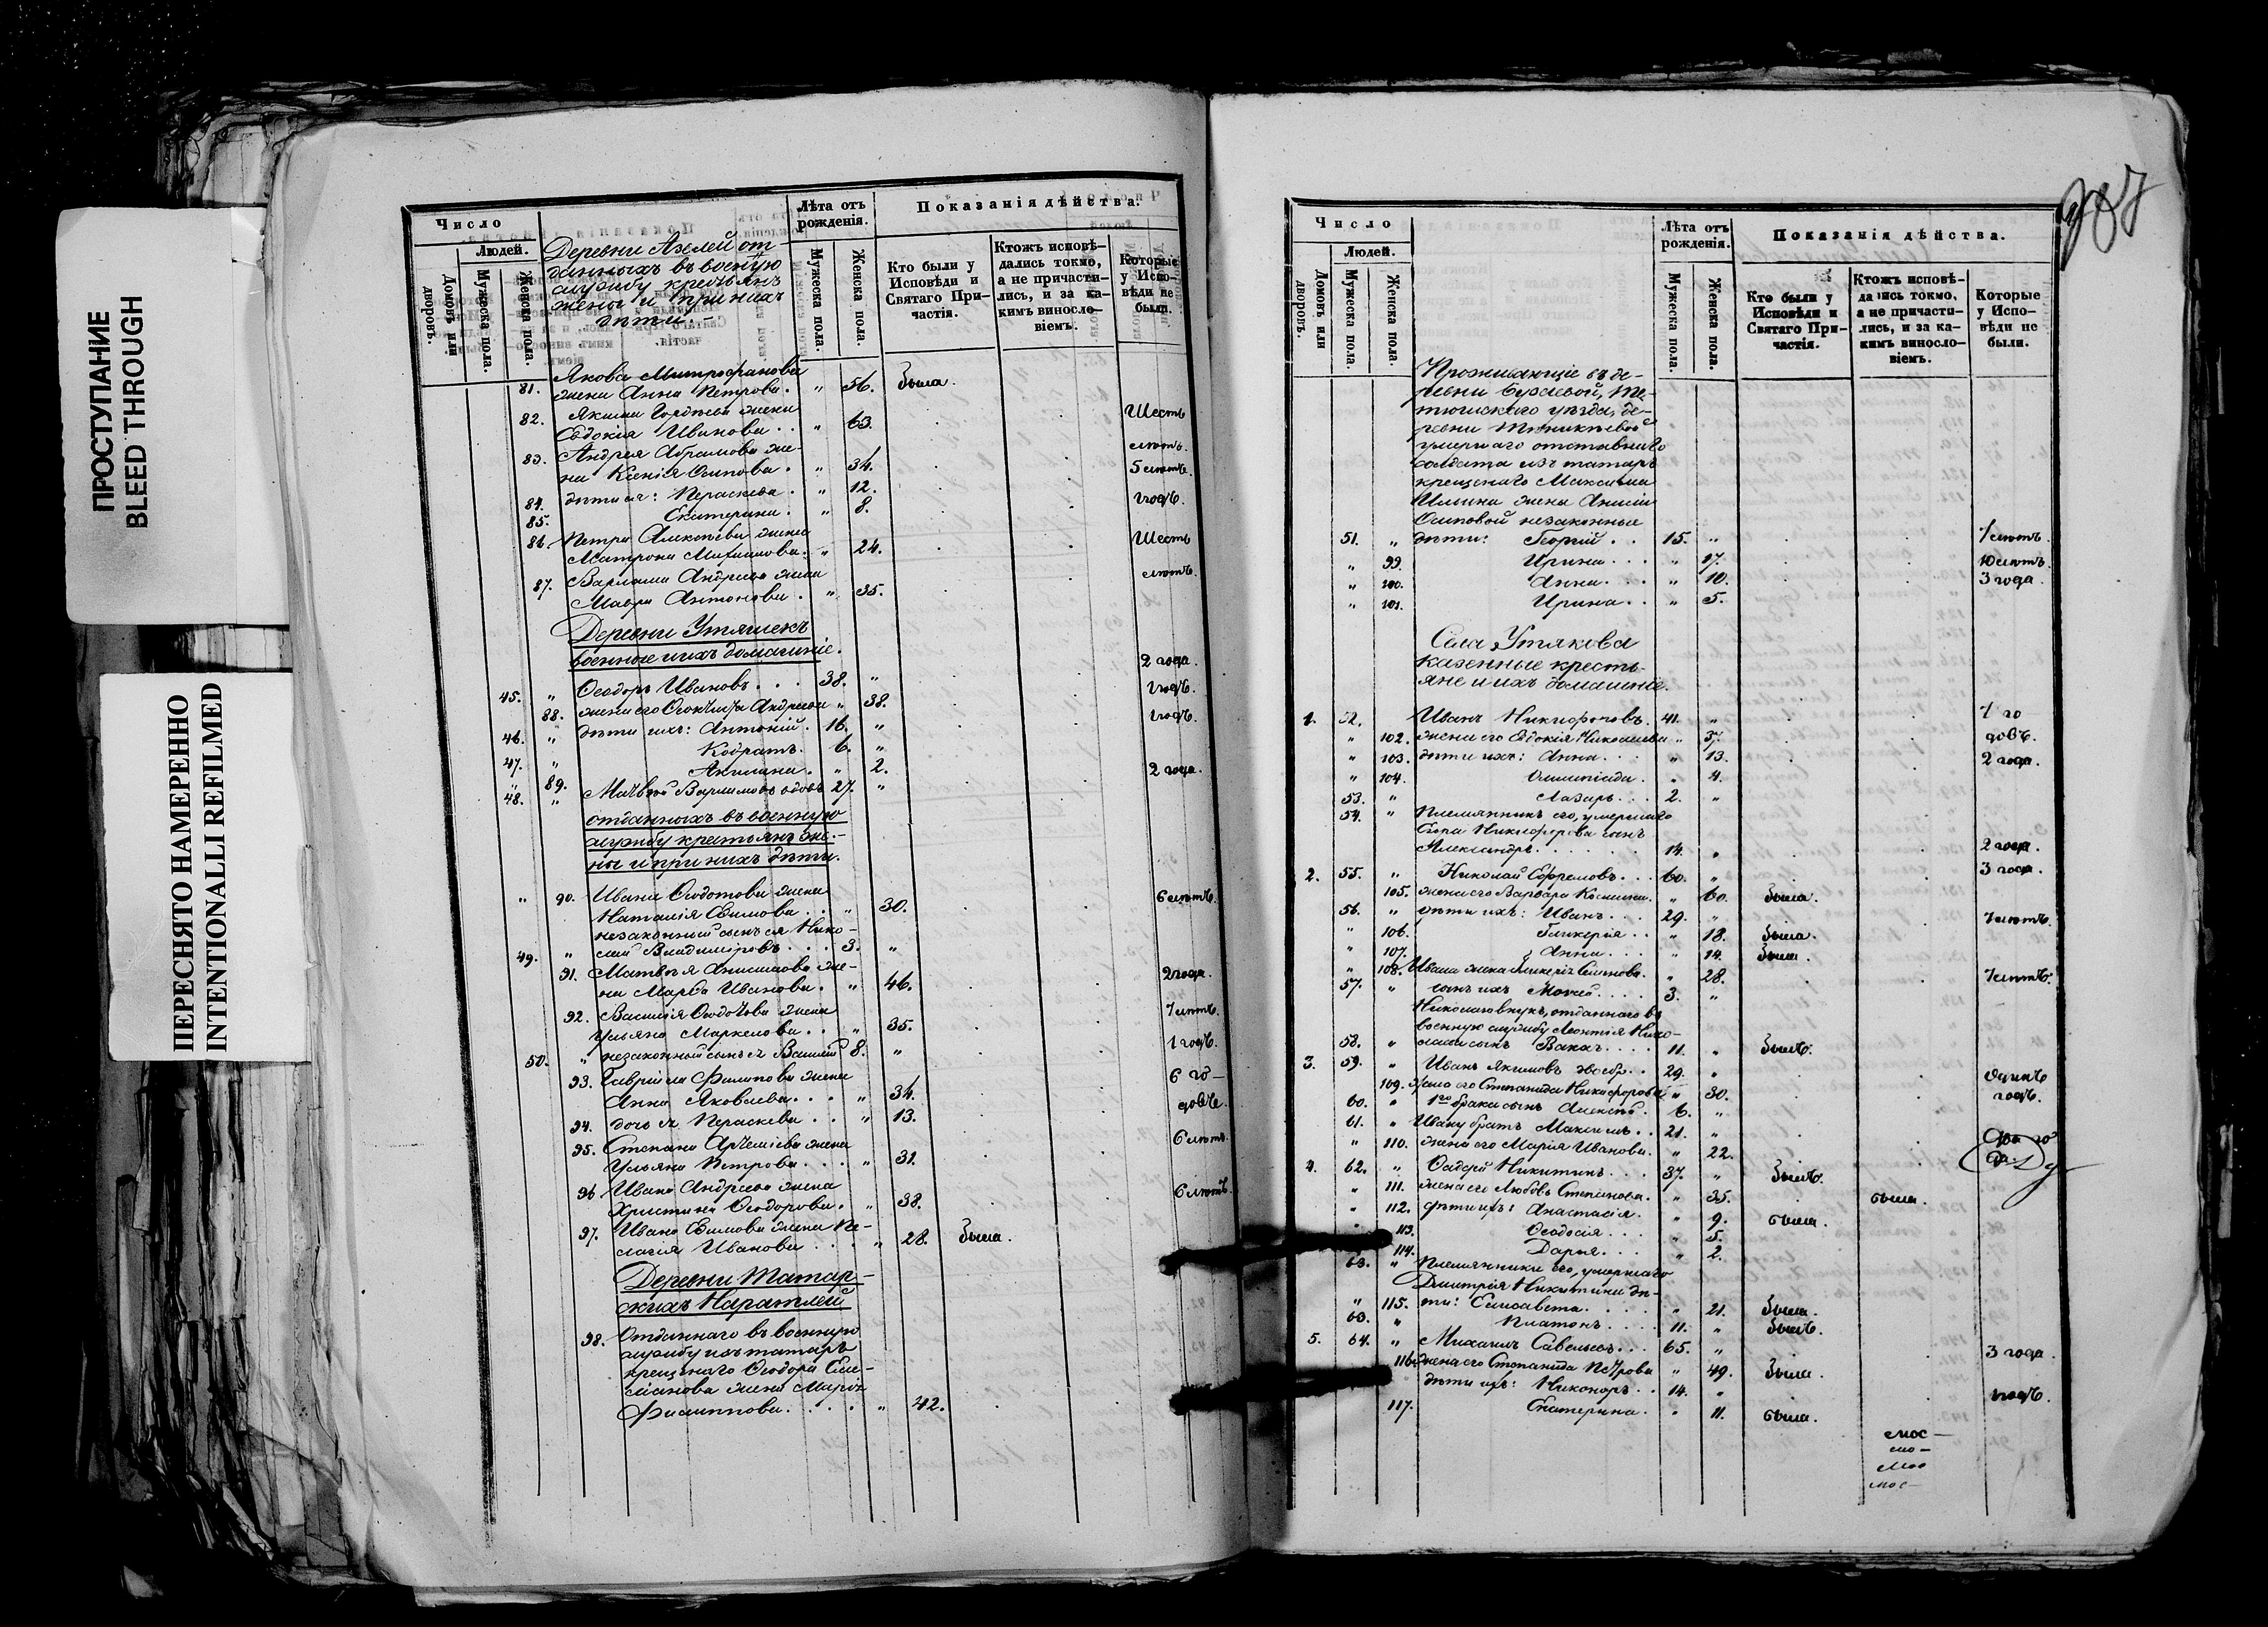 ПРОСТУПАНИЕ
BLEED THROUGH
ПЕРЕСНЯТО НАМЕРЕННО
INTENTIONALLI REFILMED
Число
Людей.
Домовъ или дворовъ.
Мужеска пола.
Женска пола.
Деревни Азелей от-
данныхъ въ военную
службу крестьянъ
жены и при нихъ
дѣти.
Лѣта отъ рожденія.
Мужеска пола.
Женска пола.
Показанія дѣйства.
Кто были у Исповѣди и Святаго При-частія.
Ктожъ исповѣ-дались токмо, а не причасти-лись, и за ка-кимъ виносло-віемъ.
Которые у Испо-вѣди не были.
Якова Митрофанова
81. жена Анна Петрова. " 56. была.
82. Якима Гордѣева жена Шесть
Евдокія Иванова. . " 63. лѣтъ.
83. Андрея Абрамова же-
на Ксенія Осипова. " 34. 5 лѣтъ.
84. дѣти ея: Параскева. " 12. годъ.
85. Екатерина. " 8.
86. Петра Алексѣева жена Шесть
Матрона Михайлова. " 24. лѣтъ.
87. Варлама Андреева жена
Мавра Антонова. " 35.
Деревни Утяшекъ
военные и ихъ домашніе.
45. " Ѳеодоръ Ивановъ. . . 38. " 2 года.
88. жена его Ѳеоктиста Андреева " 38. годъ.
46. " дѣти ихъ: Антоній. 16. " годъ.
47. " Кодратъ. 6. "
" 89. Акилина. " 2.
48. " Матвей Варламовъ вдовъ 27. " 2 года.
отданныхъ въ военную
службу крестьянъ же-
ны и при нихъ дѣти.
" 90. Ивана Ѳеодотова жена 6 лѣтъ.
Наталія Ефимова. . " 30.
незаконный сынъ ея Нико-
49. " лай Владиміровъ. . . 3. "
91. Матвея Анисимова же- 2 года.
на Марѳа Иванова. " 46.
92. Василія Ѳеодотова жена 7 лѣтъ.
Ульяна Маркелова. . " 35.
50. " незаконный сынъ ея Василій 8. " 1 годъ.
93. Гавріила Филипова жена 6 го-
Анна Яковлева. . . " 34. довъ.
94. дочь ея Параскева . . " 13.
95. Степана Артеміева жена 6 лѣтъ.
Ульяна Петрова. . . " 31.
96. Ивана Андреева жена 6 лѣтъ.
Христина Ѳеодорова. " 38.
97. Ивана Ефимова жена Пе-
лагія Иванова . . . " 28. была.
Деревни Татар-
скихъ Наратлей
98. Отданнаго въ военную
службу изъ татаръ
крещенаго Ѳеодора Еме-
ліанова жена Марія
Филиппова. . . . . " 42.
Число
Людей.
Домовъ или дворовъ.
Мужеска пола.
Женска пола.
Лѣта отъ рожденія.
Мужеска пола.
Женска пола.
Показанія дѣйства.
Кто были у Исповѣди и Святаго При-частія.
Ктожъ исповѣ-дались токмо, а не причасти-лись, и за ка-кимъ виносло-віемъ.
Которые у Испо-вѣди не были.
Проживающіе въ де-
ревни Бузаевой, Те-
тюшскаго уѣзда, де-
ревни
умершаго отставнаго
солдата изъ татаръ
крещенаго Максима
Ильина жены Анисіи
Осиповой незаконные
51. " дѣти: Георгій. . 15. " 7 лѣтъ.
" 99. Ирина. . . " 17. 10 лѣтъ.
" 100. Анна. . . " 10. 3 года.
" 101. Ирина. . " 5.
Села Утякова
казенные кресть-
яне и ихъ домашніе.
1. 52. Иванъ Никифоровъ. 41. " 7 го-
" 102. жена его Евдокія Николаева " 37. довъ.
" 103. дѣти ихъ: Анна. . . " 13. 2 года.
" 104. Олимпіада. " 4.
53. " Лазарь. . . 2. "
54. " Племянникъ его, умершаго
Никифорова сынъ
Александръ. . . . . . 14. " 2 года.
2. 55. " Николай Ефремовъ. . . 60. " 3 года.
105. жена его Варвара Космина. " 60. была.
56. " дѣти ихъ: Иванъ. . . 29. " 7 лѣтъ.
" 106. Гликерія. . " 18. была.
" 107. Анна. . . " 14. была.
" 108. Ивана жена Гликерія Семенова. " 28. 7 лѣтъ.
57. " сынъ ихъ Мокей. . . . 3. "
Николаю внукъ, отданнаго въ
военную службу Леонтія Нико-
58. " лаева сынъ Вакхъ. . . . 11. " былъ.
3. 59. " Иванъ Якимовъ 29. " Одинъ
109. жена его Степанида Никифорова " 30. годъ.
60. " 1го брака сынъ Алексѣй. 6. "
61. " Ивану братъ Максимъ. . 21. " Два го-
" 110. жена его Марія Иванова. " 22. да
4. 62. " Ѳадей Никитинъ. . . 37. " былъ.
" 111. жена его Любовь Степанова. " 35. была.
" 112. дѣти ихъ: Анастасія. " 9. была.
" 113. Ѳеодосія. . . " 5.
114. Дарья. . . " 2.
63. " Племянники его, умершаго
Дмитрія Никитина дѣ-
" 115. ти: Елисавета. . . . " 21. была.
63. " Платонъ. . . . 11. " былъ.
5. 64. " Михаилъ Савельевъ. . . 65. " 3 года.
116. жена его Степанида Петрова " 49. была.
дѣти ихъ: Никоноръ. . 14. " годъ.
117. Екатерина. " 11. была.